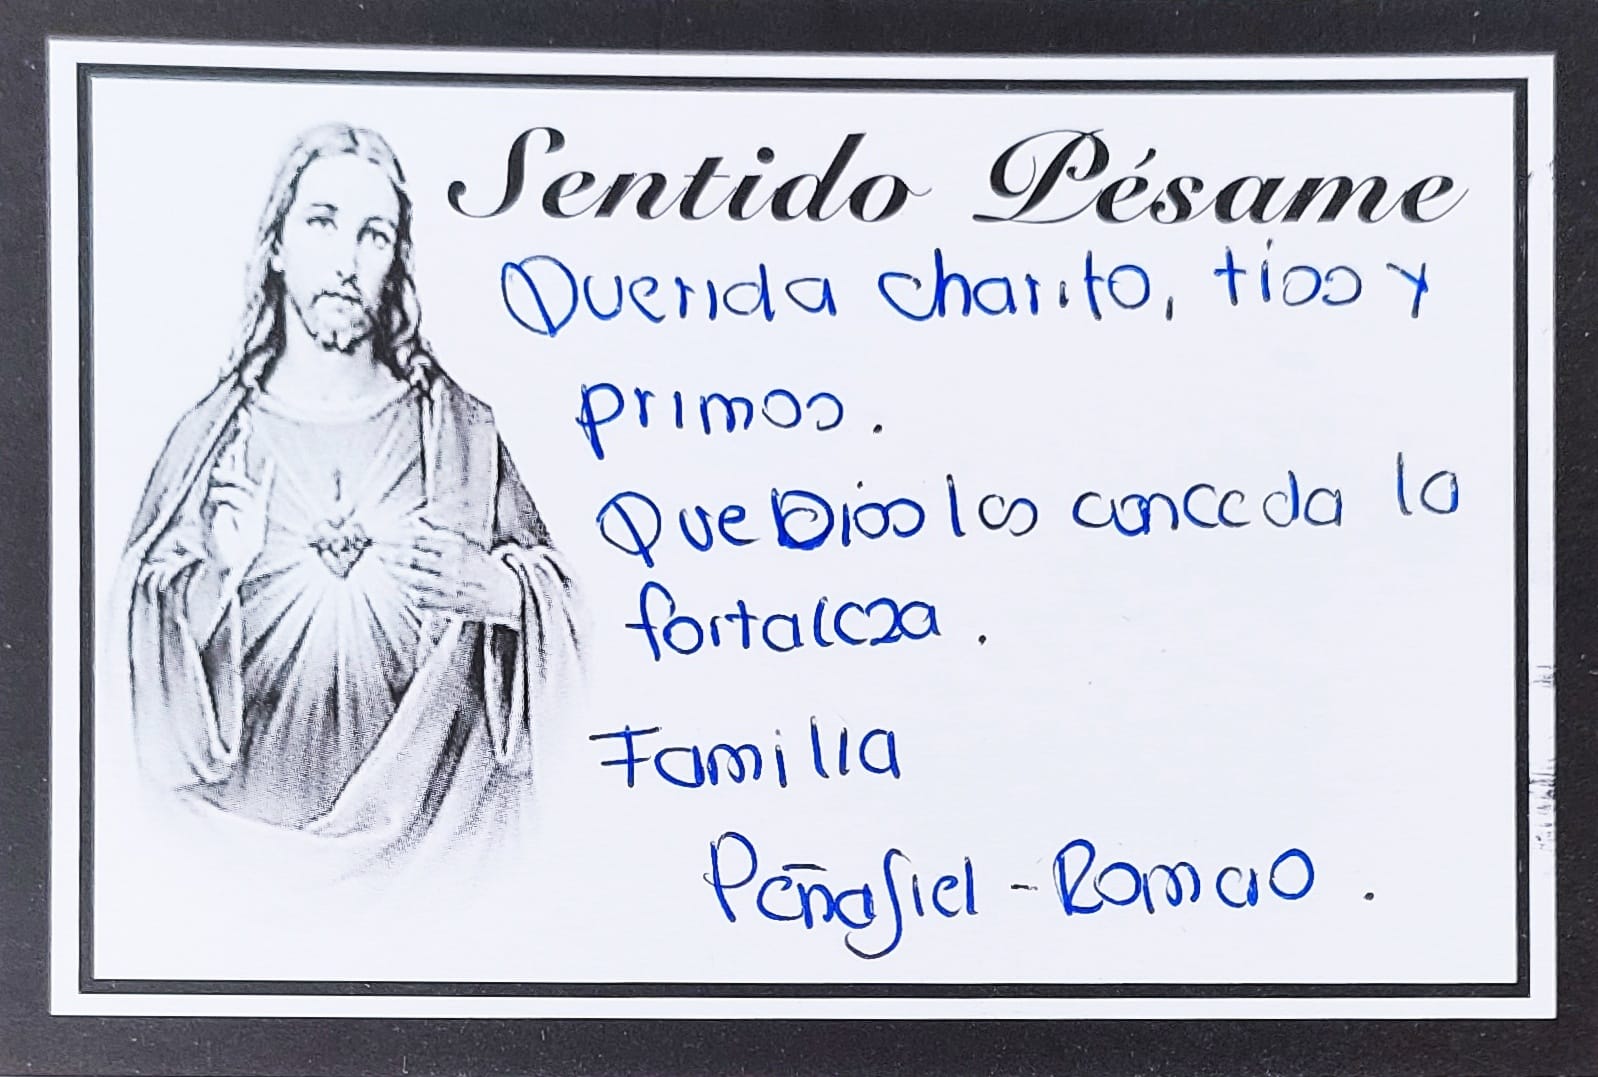 Sentido Pésame
Querida Charito, tios y
primos.
Que Dios les conceda la
fortaleza.
Familia
Peñafiel - Romero.